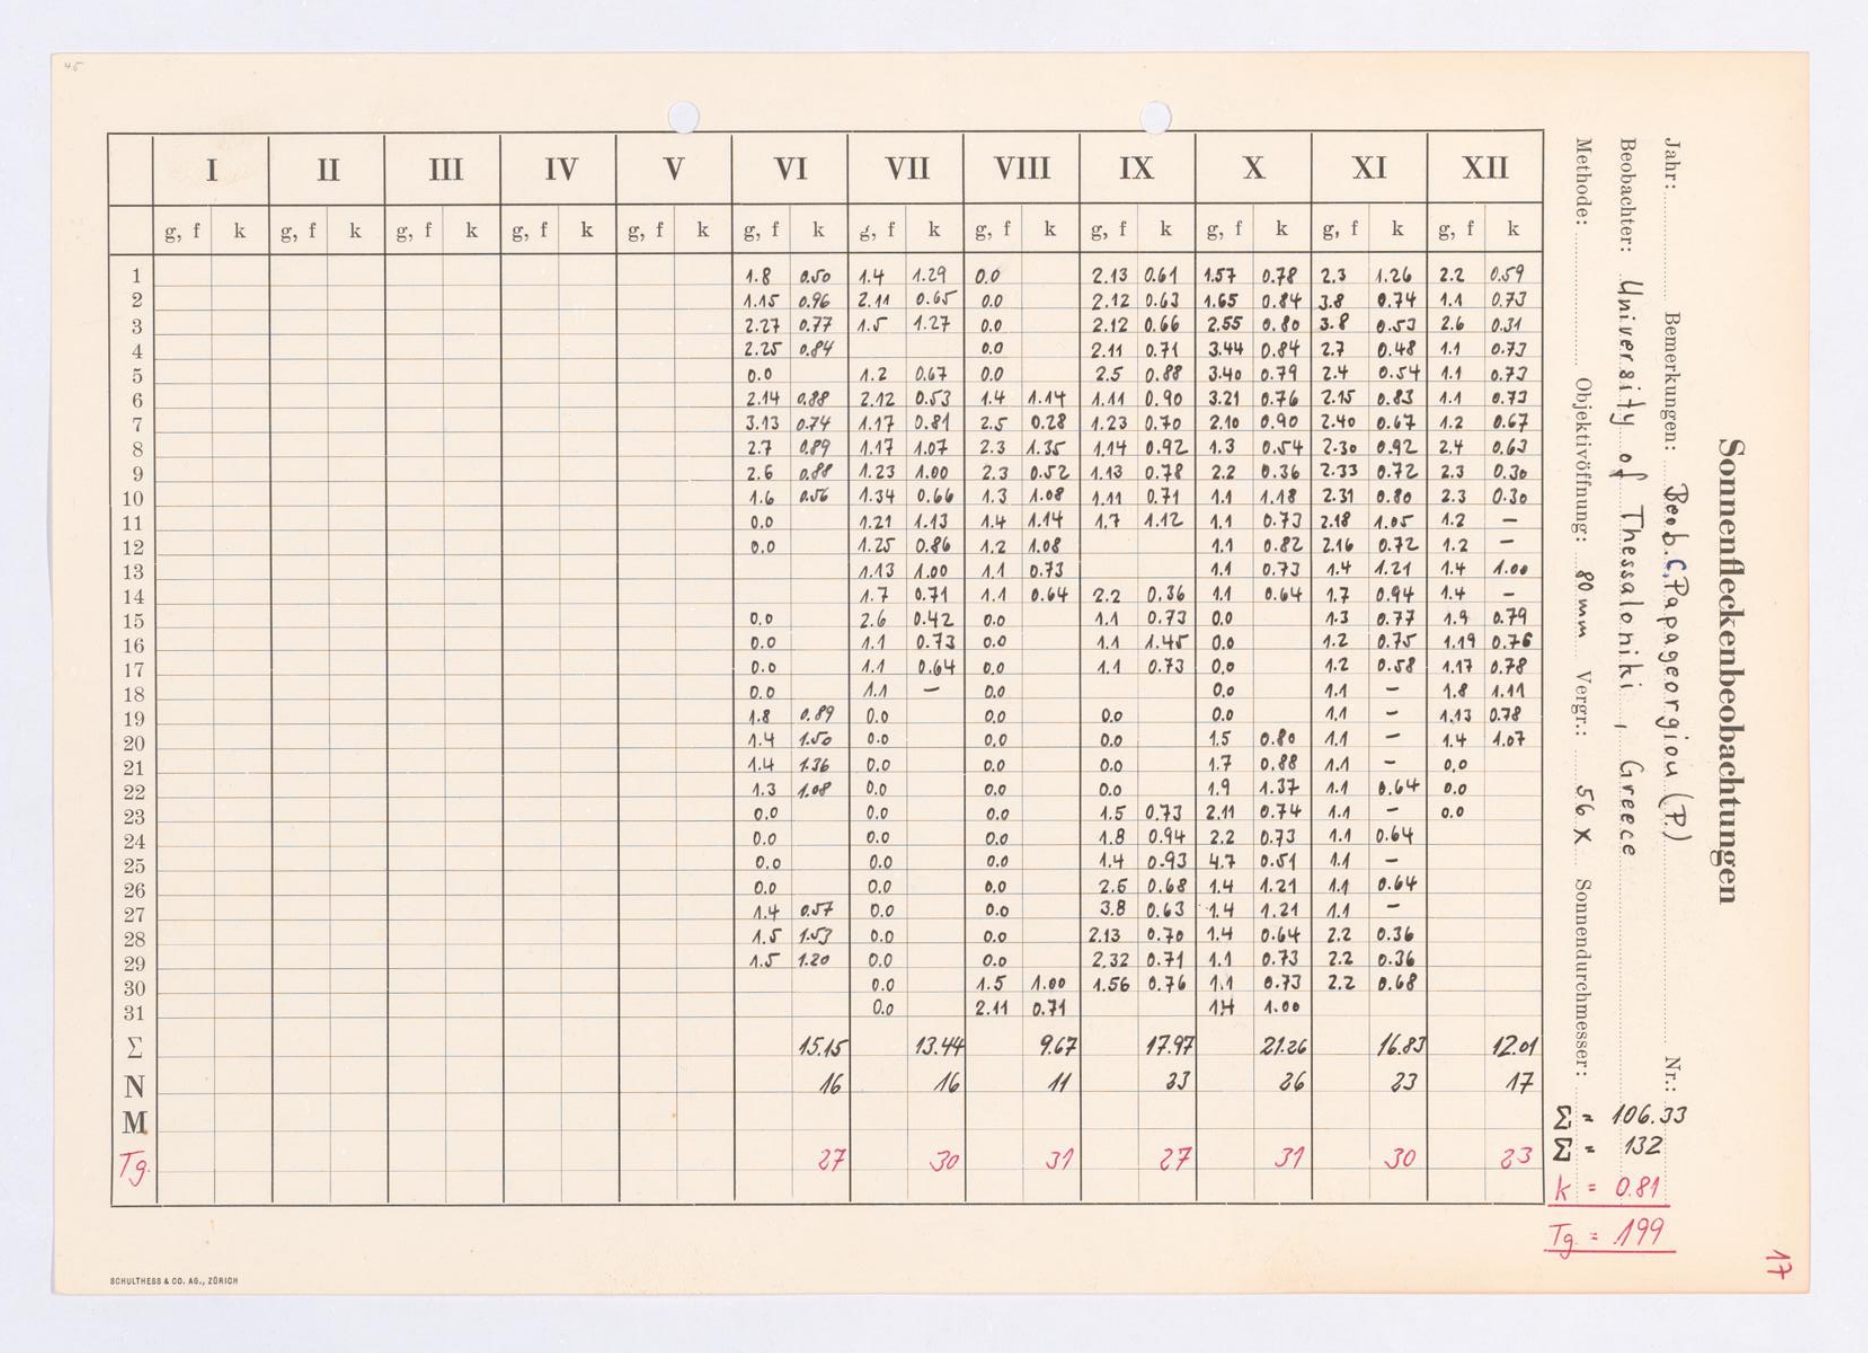 45
Sonnenfleckenbeobachtungen
Jahr: Bemerkungen: Beob. C. Papageorgiou (P.) Nr.:
Beobachter: University of Thessaloniki, Greece
Methode: Objektivöffnung: 80 mm Vergr.: 56 X Sonnendurchmesser:
I II III IV V VI VII VIII IX X XI XII
g, f k g, f k g, f k g, f k g, f k g, f k g, f k g, f k g, f k g, f k g, f k g, f k
1 1.8 0.50 1.4 1.29 0.0 2.13 0.61 1.57 0.78 2.3 1.26 2.2 0.59
2 1.15 0.96 2.11 0.65 0.0 2.12 0.63 1.65 0.84 3.8 0.74 1.1 0.73
3 2.27 0.77 1.5 1.27 0.0 2.12 0.66 2.55 0.80 3.8 0.53 2.6 0.31
4 2.25 0.84 0.0 2.11 0.71 3.44 0.84 2.7 0.48 1.1 0.73
5 0.0 1.2 0.67 0.0 2.5 0.88 3.40 0.79 2.4 0.54 1.1 0.73
6 2.14 0.88 2.12 0.53 1.4 1.14 1.11 0.90 3.21 0.76 2.15 0.83 1.1 0.73
7 3.13 0.74 1.17 0.81 2.5 0.28 1.23 0.70 2.10 0.90 2.40 0.67 1.2 0.67
8 2.7 0.89 1.17 1.07 2.3 1.35 1.14 0.92 1.3 0.54 2.30 0.92 2.4 0.63
9 2.6 0.88 1.23 1.00 2.3 0.52 1.13 0.78 2.2 0.36 2.33 0.72 2.3 0.30
10 1.6 0.56 1.34 0.66 1.3 1.08 1.11 0.71 1.1 1.18 2.31 0.80 2.3 0.30
11 0.0 1.21 1.13 1.4 1.14 1.7 1.12 1.1 0.73 2.18 1.05 1.2 –
12 0.0 1.25 0.86 1.2 1.08 1.1 0.82 2.16 0.72 1.2 –
13 1.13 1.00 1.1 0.73 1.1 0.73 1.4 1.21 1.4 1.00
14 1.7 0.71 1.1 0.64 2.2 0.36 1.1 0.64 1.7 0.94 1.4 –
15 0.0 2.6 0.42 0.0 1.1 0.73 0.0 1.3 0.77 1.9 0.79
16 0.0 1.1 0.73 0.0 1.1 1.45 0.0 1.2 0.75 1.19 0.76
17 0.0 1.1 0.64 0.0 1.1 0.73 0.0 1.2 0.58 1.17 0.78
18 0.0 1.1 – 0.0 0.0 1.1 – 1.8 1.11
19 1.8 0.89 0.0 0.0 0.0 0.0 1.1 – 1.13 0.78
20 1.4 1.50 0.0 0.0 0.0 1.5 0.80 1.1 – 1.4 1.07
21 1.4 1.36 0.0 0.0 0.0 1.7 0.88 1.1 – 0.0
22 1.3 1.08 0.0 0.0 0.0 1.9 1.37 1.1 0.64 0.0
23 0.0 0.0 0.0 1.5 0.73 2.11 0.74 1.1 – 0.0
24 0.0 0.0 0.0 1.8 0.94 2.2 0.73 1.1 0.64
25 0.0 0.0 0.0 1.4 0.93 4.7 0.51 1.1 –
26 0.0 0.0 0.0 2.6 0.68 1.4 1.21 1.1 0.64
27 1.4 0.57 0.0 0.0 3.8 0.63 1.4 1.21 1.1 –
28 1.5 1.53 0.0 0.0 2.13 0.70 1.4 0.64 2.2 0.36
29 1.5 1.20 0.0 0.0 2.32 0.71 1.1 0.73 2.2 0.36
30 0.0 1.5 1.00 1.56 0.76 1.1 0.73 2.2 0.68
31 0.0 2.11 0.71 1.00
Σ 15.15 13.44 9.67 17.97 21.26 16.83 12.01
N 16 16 11 23 26 23 17
M
Tg. 27 30 31 27 31 30 23
Σ = 106.33
Σ = 132
k = 0.81
Tg = 199
17
SCHULTHESS & CO. AG., ZÜRICH